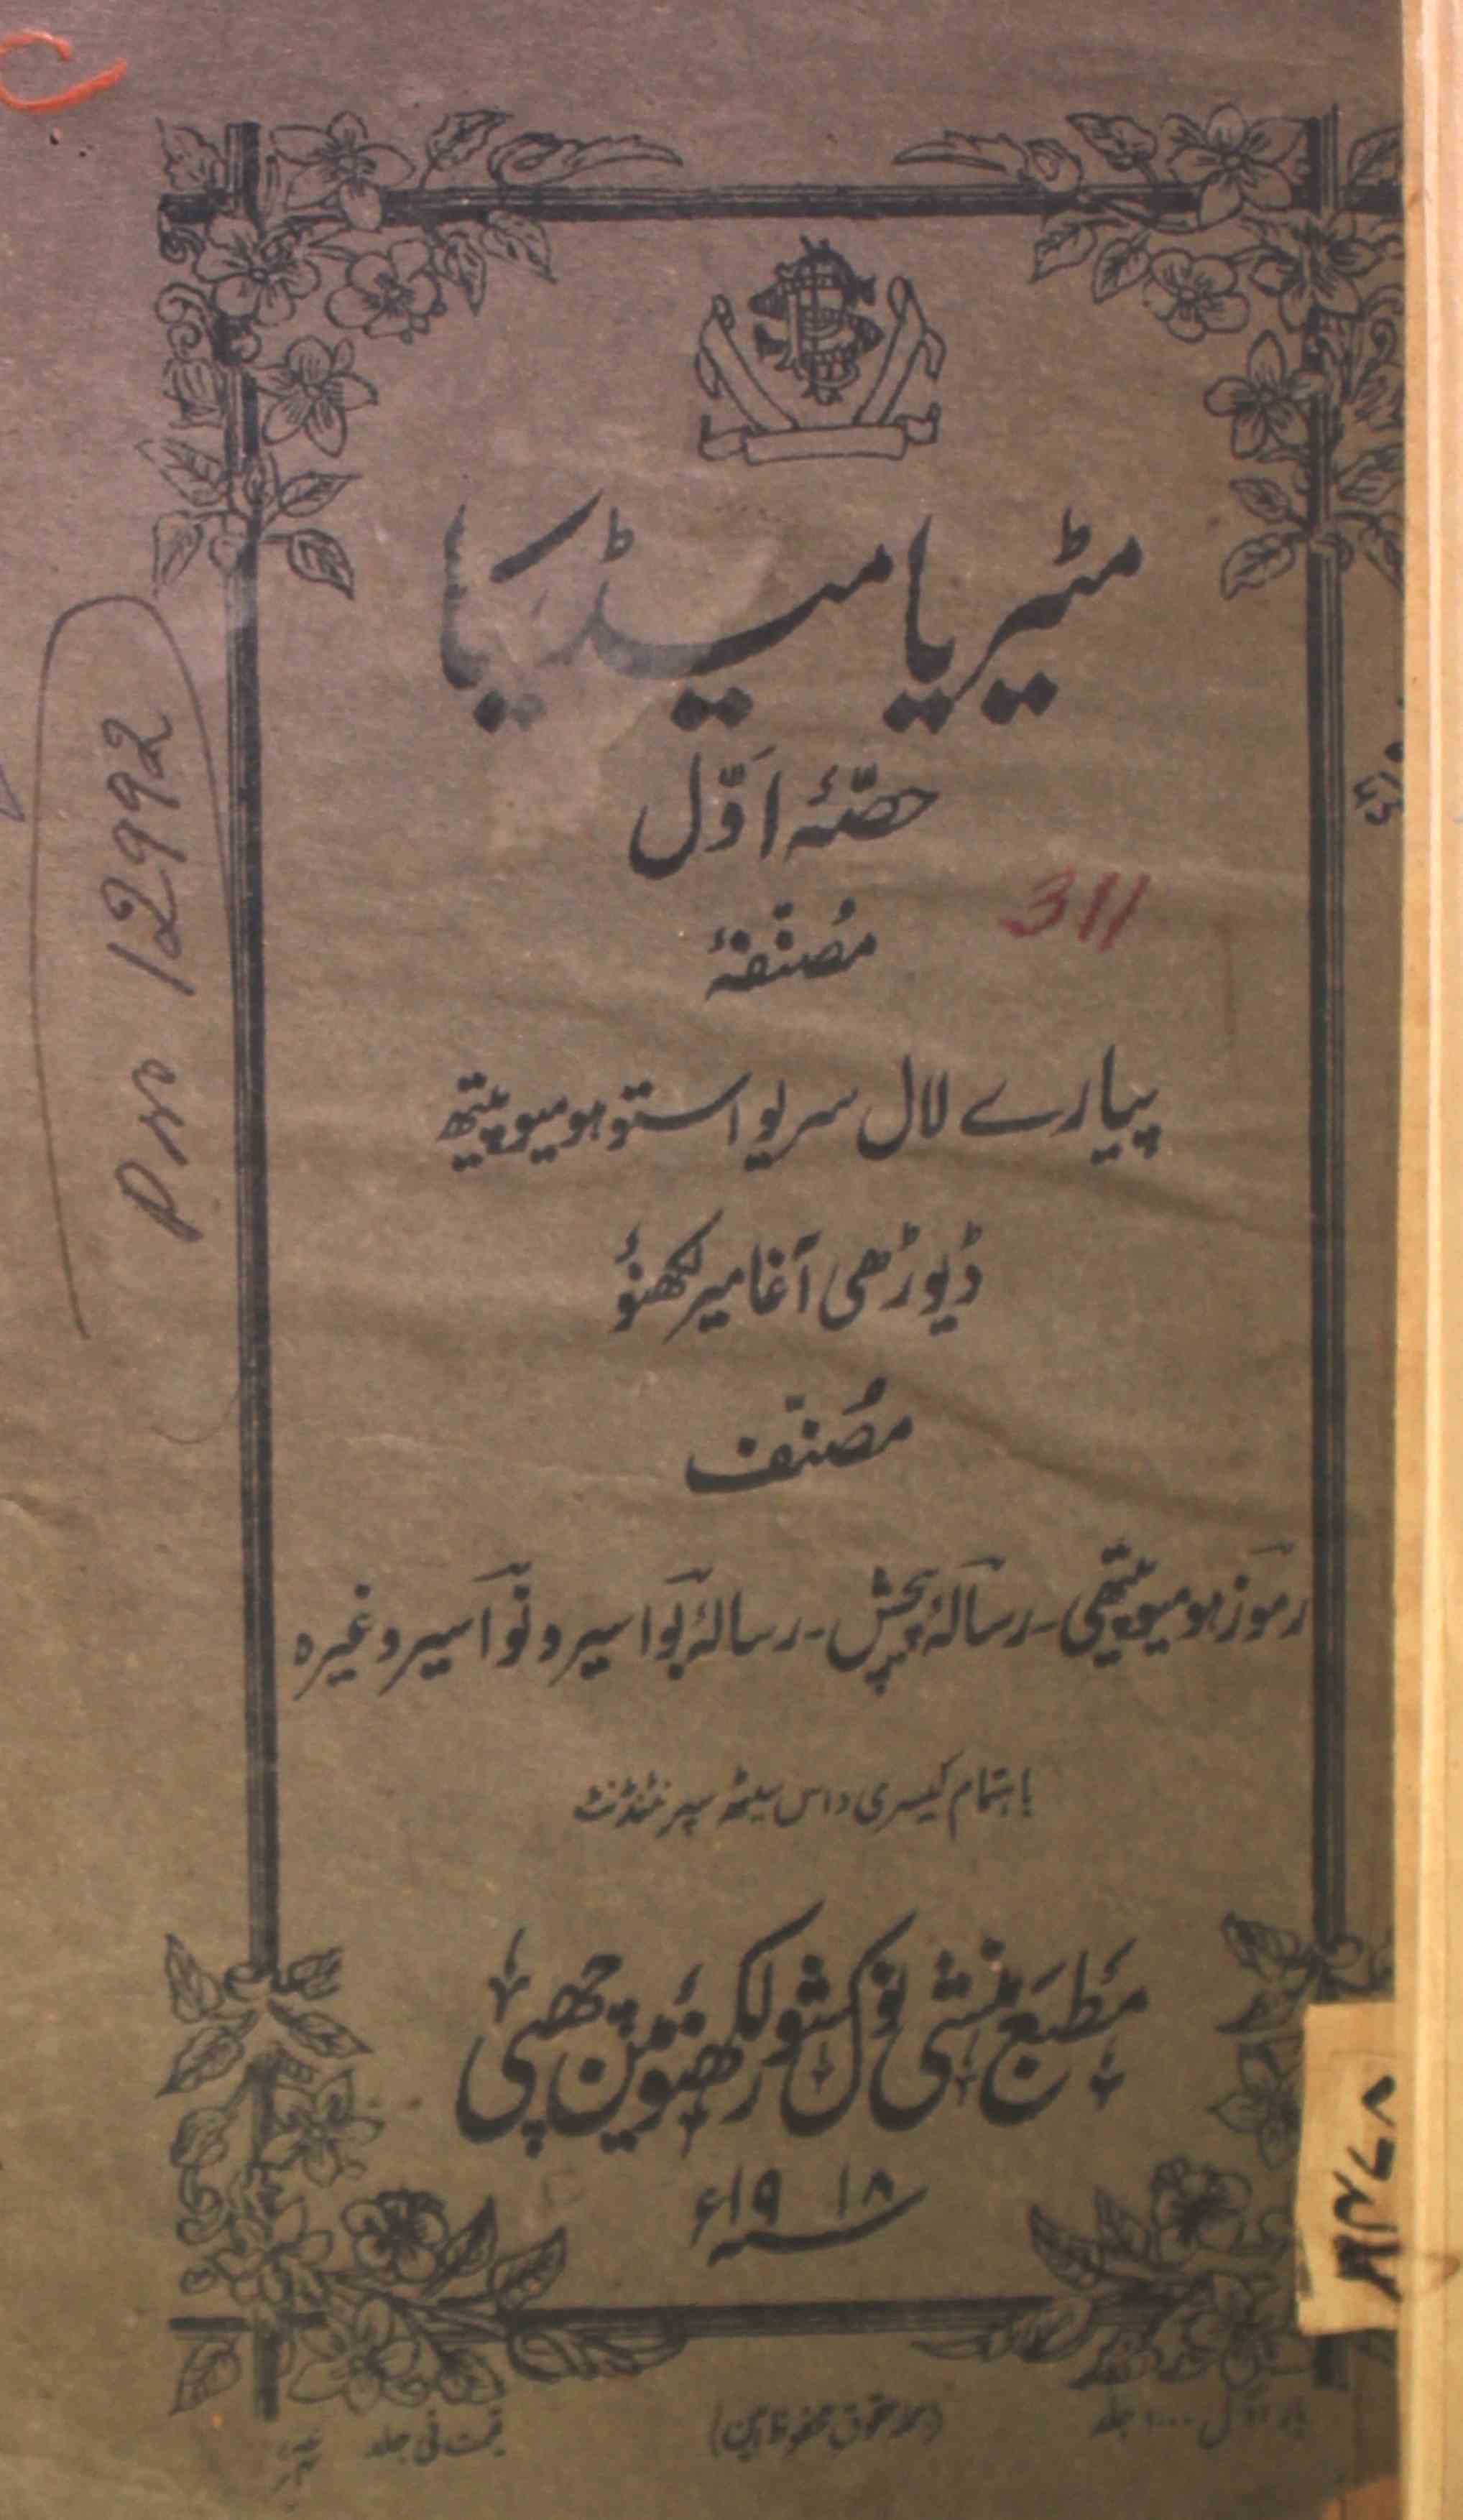 مٹیریا میڈیکا
حصّۂ اَوّل
311
مُصنّفۂ
پیارے لال سریواستو ہومیوپیتھ
ڈیوڑھی آغا میر لکھنؤ
مُصنّف
رموز ہومیوپیتھی - رسالۂ پیچش - رسالۂ بواسیر و نواسیر وغیرہ
باہتمام کیسری داس سیٹھ سپرنٹنڈنٹ
مطبع منشی نولکشور لکھنؤ مین چھپی
۱۹۱۸ء
بار اول ۱۰۰۰ جلد
(جملہ حقوق محفوظ ہین)
قیمت فی جلد
12992